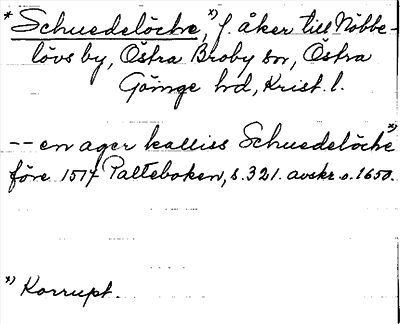 * Schuedelöche,*) f. åker till Nöbbe-
lövs by, Östra Broby sn, Östra
Göinge hd, Krist. l.
-- en ager kalliss Schuedelöche*)
före 1517 Palteboken, s. 321. avskr. o. 1650.
*) Korrupt.